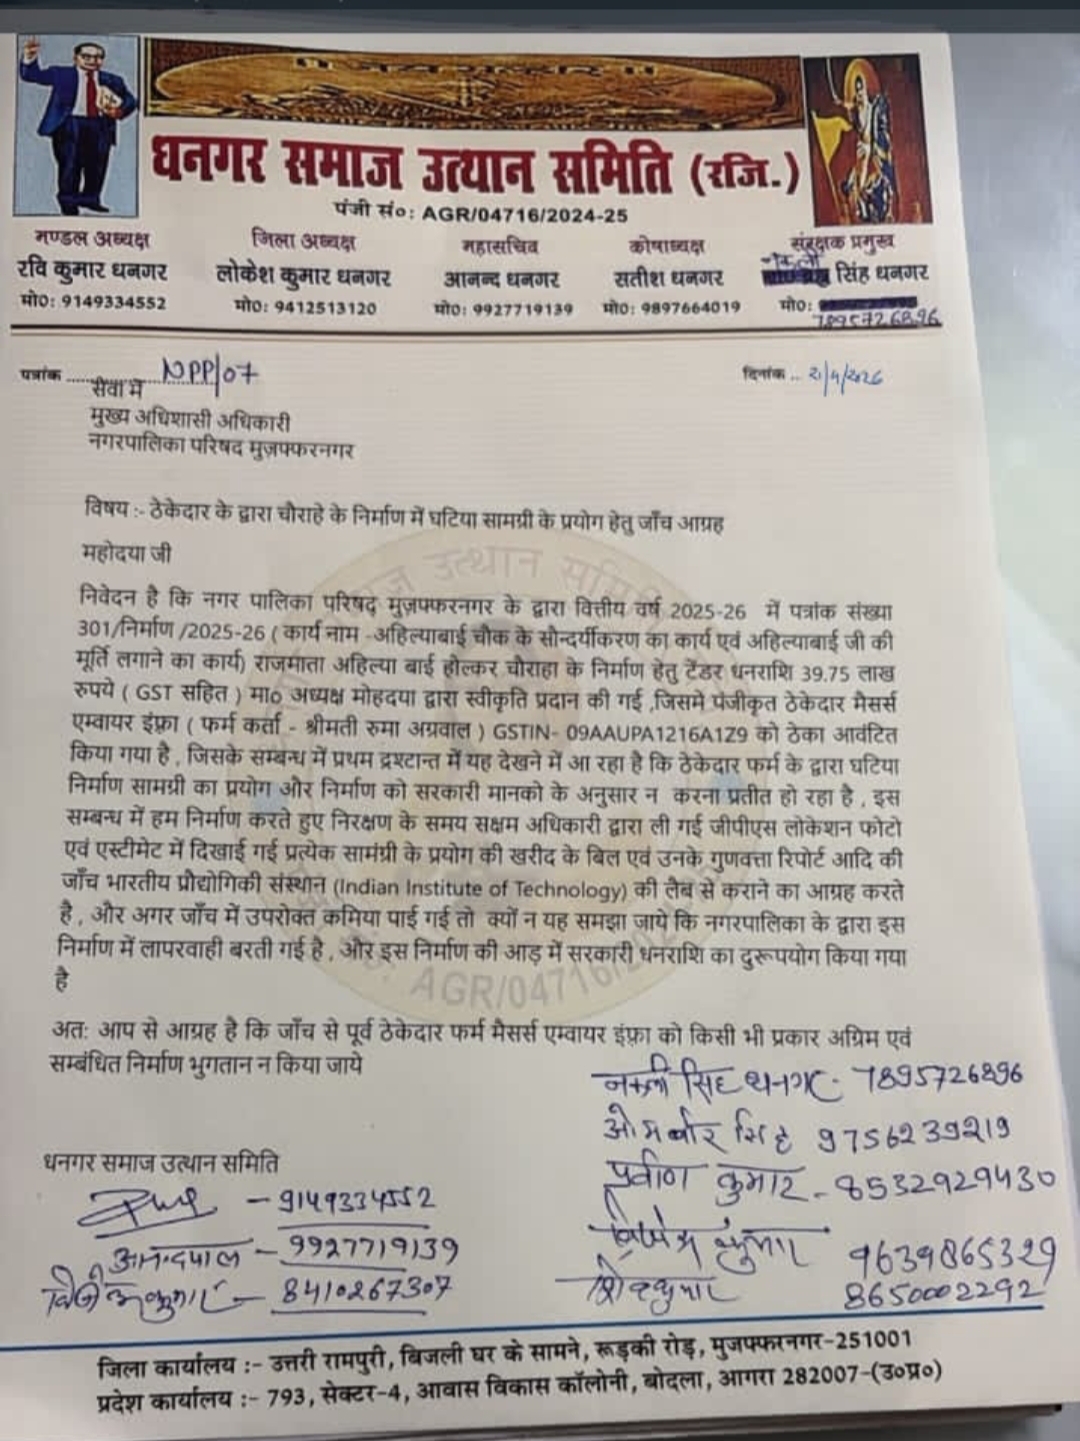 धनगर समाज उत्थान समिति (रजि.)
पंजी सं०: AGR/04716/2024-25
मण्डल अध्यक्ष जिला अध्यक्ष महासचिव कोषाध्यक्ष संरक्षक प्रमुख
रवि कुमार धनगर लोकेश कुमार धनगर आनन्द धनगर सतीश धनगर सिंह धनगर
मो0: 9149334552 मो0: 9412513120 मो0: 9927719139 मो0: 9897664019 मो0:
7895726896
पत्रांक NPP/07 दिनांक .. 21/4/2026
सेवा में
मुख्य अधिशासी अधिकारी
नगरपालिका परिषद मुज़फ्फरनगर
विषय :- ठेकेदार के द्वारा चौराहे के निर्माण में घटिया सामग्री के प्रयोग हेतु जाँच आग्रह
महोदया जी
निवेदन है कि नगर पालिका परिषद मुज़फ्फरनगर के द्वारा वित्तीय वर्ष 2025-26 में पत्रांक संख्या
301/निर्माण /2025-26 ( कार्य नाम -अहिल्याबाई चौक के सौन्दर्यीकरण का कार्य एवं अहिल्याबाई जी की
मूर्ति लगाने का कार्य) राजमाता अहिल्या बाई होल्कर चौराहा के निर्माण हेतु टेंडर धनराशि 39.75 लाख
रुपये ( GST सहित ) मा० अध्यक्ष मोहदया द्वारा स्वीकृति प्रदान की गई ,जिसमे पंजीकृत ठेकेदार मैसर्स
एम्वायर इंफ़्रा ( फर्म कर्ता - श्रीमती रुमा अग्रवाल ) GSTIN- 09AAUPA1216A1Z9 को ठेका आवंटित
किया गया है , जिसके सम्बन्ध में प्रथम द्रश्टान्त में यह देखने में आ रहा है कि ठेकेदार फर्म के द्वारा घटिया
निर्माण सामग्री का प्रयोग और निर्माण को सरकारी मानको के अनुसार न करना प्रतीत हो रहा है , इस
सम्बन्ध में हम निर्माण करते हुए निरक्षण के समय सक्षम अधिकारी द्वारा ली गई जीपीएस लोकेशन फोटो
एवं एस्टीमेट में दिखाई गई प्रत्येक सामंग्री के प्रयोग की खरीद के बिल एवं उनके गुणवत्ता रिपोर्ट आदि की
जाँच भारतीय प्रौद्योगिकी संस्थान (Indian Institute of Technology) की लैब से कराने का आग्रह करते
है , और अगर जाँच में उपरोक्त कमिया पाई गई तो क्यों न यह समझा जाये कि नगरपालिका के द्वारा इस
निर्माण में लापरवाही बरती गई है , और इस निर्माण की आड़ में सरकारी धनराशि का दुरूपयोग किया गया
है
अत: आप से आग्रह है कि जाँच से पूर्व ठेकेदार फर्म मैसर्स एम्वायर इंफ़्रा को किसी भी प्रकार अग्रिम एवं
सम्बंधित निर्माण भुगतान न किया जाये
सिंह धनगर- 7895726896
ओमबीर सिंह 9756239219
प्रवीण कुमार - 8532929430
कुमार 9639865329
8650002292
धनगर समाज उत्थान समिति
- 9149334552
आनन्दपाल - 9927719139
8410267307
जिला कार्यालय :- उत्तरी रामपुरी, बिजली घर के सामने, रूड़की रोड़, मुजफ्फरनगर-251001
प्रदेश कार्यालय :- 793, सेक्टर-4, आवास विकास कॉलोनी, बोदला, आगरा 282007-(उ०प्र०)